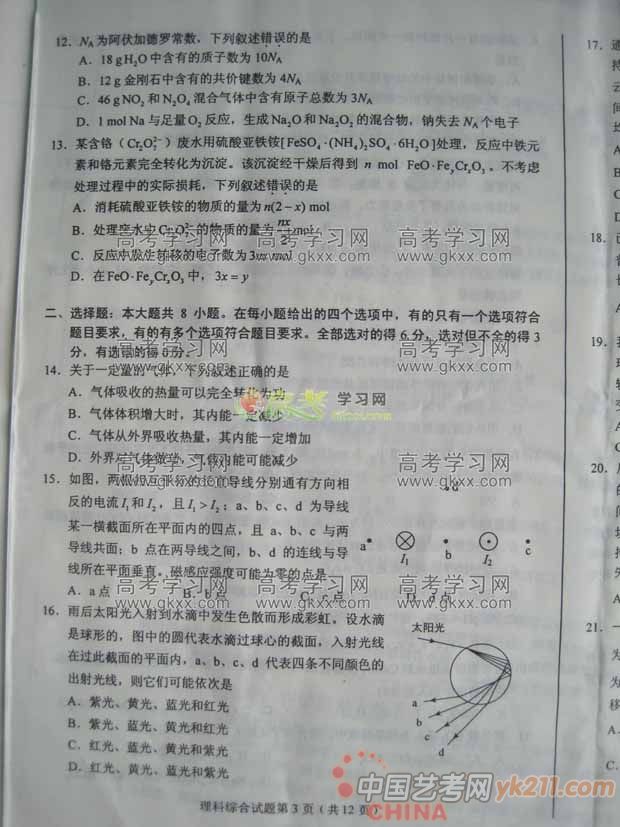 12. NA为阿伏加德罗常数,下列叙述错误的是
A. 18 gH₂O中含有的质子数为10NA
B. 12 g金刚石中含有的共价键数为4NA
C. 46 g NO₂和N₂O₄混合气体中含有原子总数为3NA
D. 1 mol Na与足量O₂反应,生成Na₂O和Na₂O₂的混合物,钠失去NA个电子
13. 某含铬(Cr₂O₇²⁻)废水用硫酸亚铁铵[FeSO₄·(NH₄)₂SO₄·6H₂O]处理,反应中铁元
素和铬元素完全转化为沉淀。该沉淀经干燥后得到 n mol FeO·FeyCrxO₃。不考虑
处理过程中的实际损耗,下列叙述错误的是
A. 消耗硫酸亚铁铵的物质的量为n(2-x) mol
B. 处理废水中Cr₂O₇²⁻的物质的量为nx/2 mol
C. 反应中发生转移的电子数为3nx mol
D. 在FeO·FeyCrxO₃中,3x=y
二、选择题:本大题共 8 小题。在每小题给出的四个选项中,有的只有一个选项符合
题目要求,有的有多个选项符合题目要求。全部选对的得 6 分,选对但不全的得 3
分,有选错的得 0 分。
14. 关于一定量的气体,下列叙述正确的是
A. 气体吸收的热量可以完全转化为功
B. 气体体积增大时,其内能一定减少
C. 气体从外界吸收热量,其内能一定增加
D. 外界对气体做功,气体内能可能减少
15. 如图,两根相互平行的长直导线分别通有方向相
反的电流I₁和I₂,且I₁>I₂;a、b、c、d 为导线
某一横截面所在平面内的四点,且 a、b、c 与两
导线共面;b 点在两导线之间,b、d 的连线与导
线所在平面垂直。磁感应强度可能为零的点是
A. a点 B. b点 C. c点 D. d点
d
a I₁ b I₂ c
16. 雨后太阳光入射到水滴中发生色散而形成彩虹。设水滴
是球形的,图中的圆代表水滴过球心的截面,入射光线
在过此截面的平面内,a、b、c、d 代表四条不同颜色的
出射光线,则它们可能依次是
A. 紫光、黄光、蓝光和红光
B. 紫光、蓝光、黄光和红光
C. 红光、蓝光、黄光和紫光
D. 红光、黄光、蓝光和紫光
太阳光
a
b
c
d
理科综合试题第 3 页(共 12 页)
高考学习网 高考学习网
www.gkxx.com www.gkxx.com
高考学习网 高考学习网
www.gkxx.com www.gkxx.com
学习网
高考学习网 高考学习网
www.gkxx.com www.gkxx.com
高考学习网 高考学习网
www.gkxx.com www.gkxx.com
中国艺考网 yk211.com
CHINA
17.
18.
19.
20.
21.